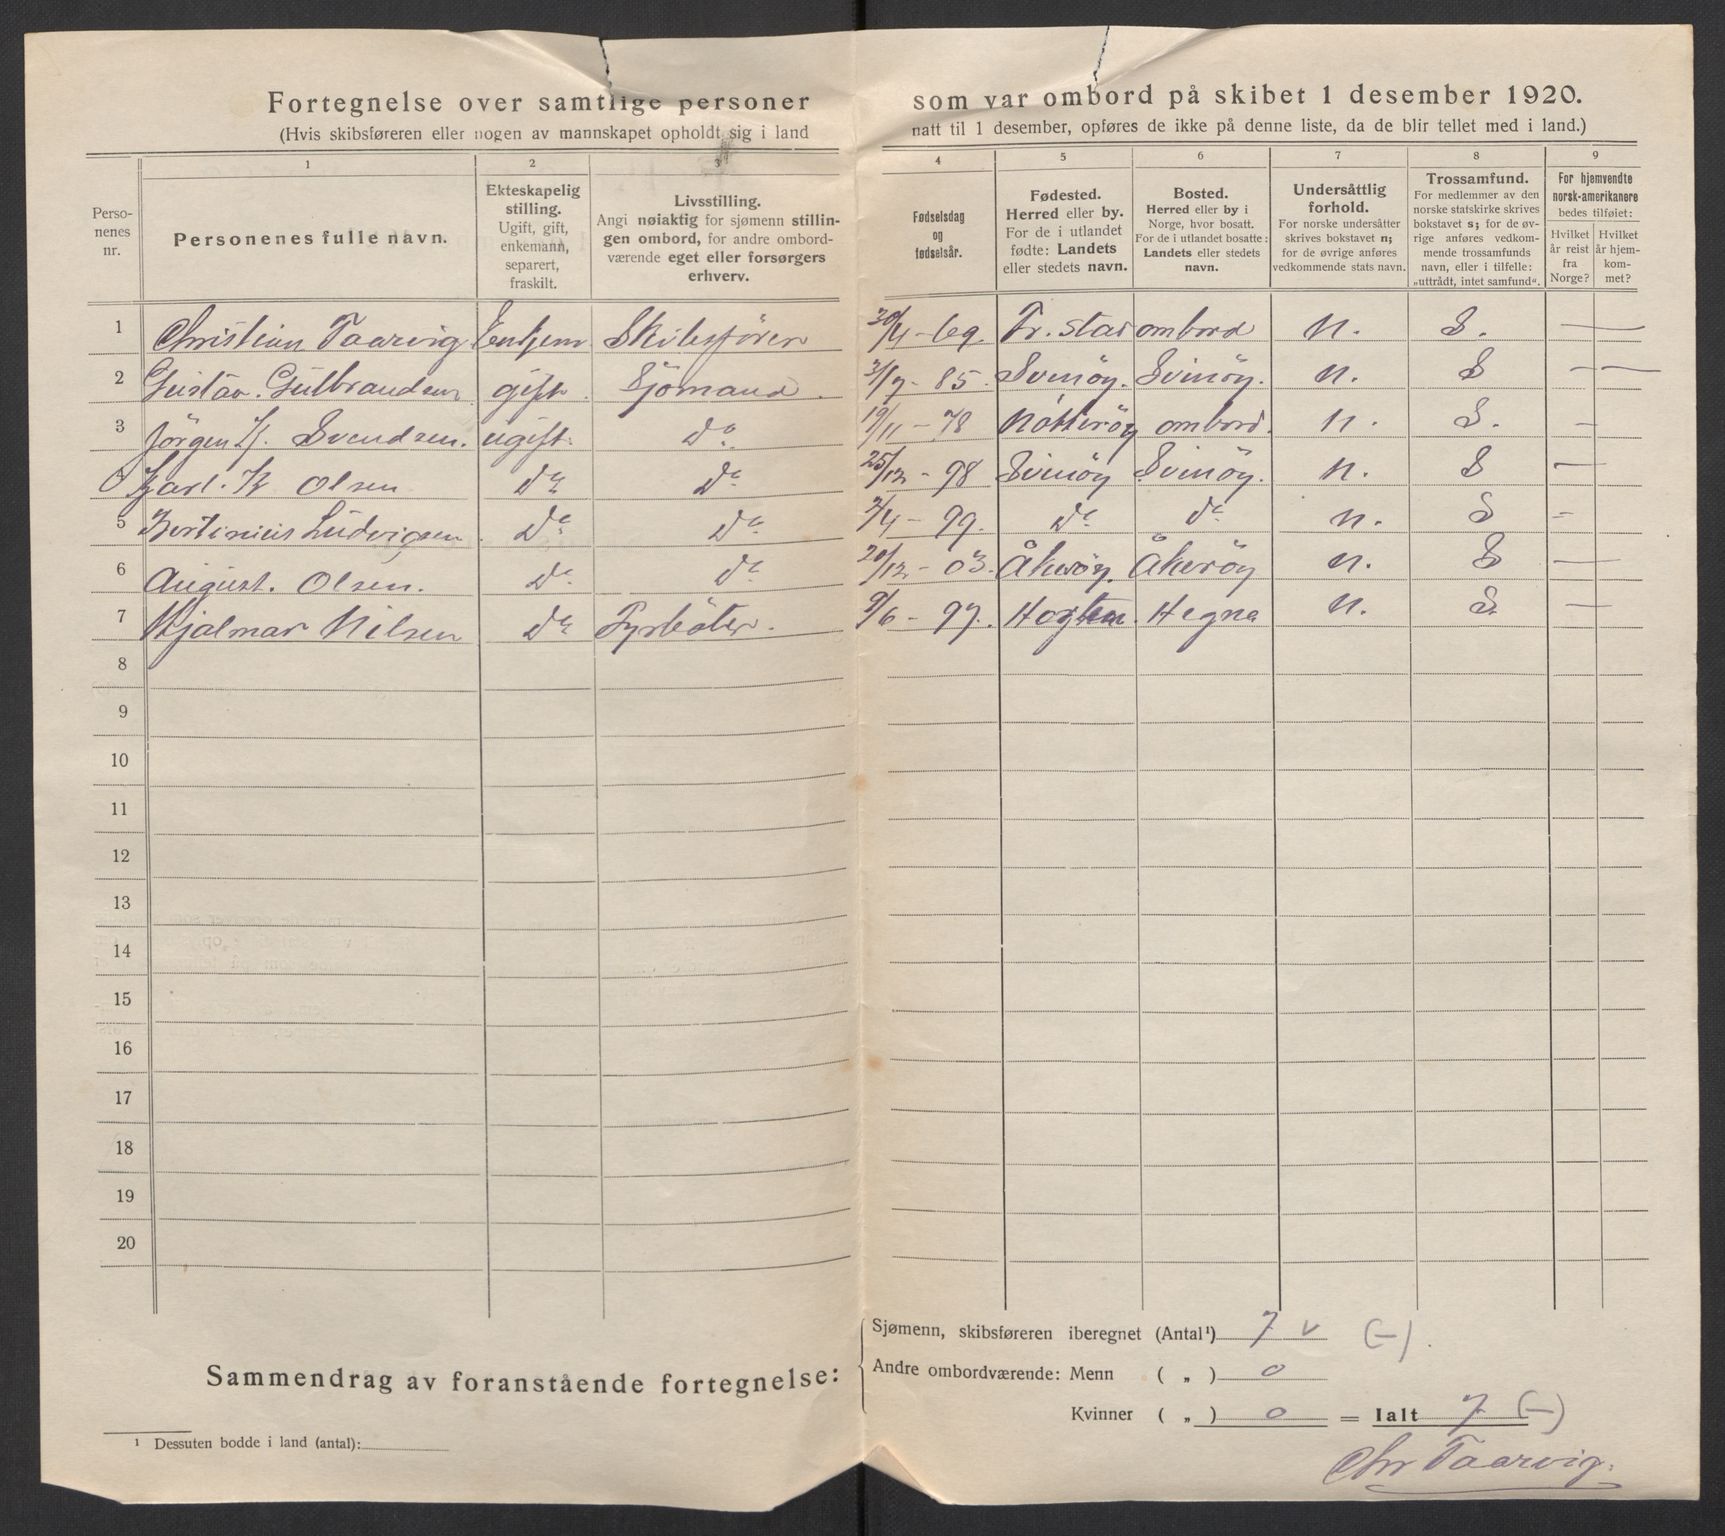 Fortegnelse over samtlige personer som var ombord på skibet 1 desember 1920.
(Hvis skibsføreren eller nogen av mannskapet opholdt sig i land natt til 1 desember, opføres de ikke på denne liste, da de blir tellet med i land.)
Perso-nenes nr.
1
Personenes fulle navn.
2
Ekteskapelig stilling.
Ugift, gift, enkemann, separert, fraskilt.
3
Livsstilling.
Angi nøiaktig for sjømenn stillingen ombord, for andre ombordværende eget eller forsørgers erhverv.
4
Fødselsdag og fødselsår.
5
Fødested.
Herred eller by.
For de i utlandet fødte: Landets eller stedets navn.
6
Bosted.
Herred eller by i Norge, hvor bosatt.
For de i utlandet bosatte: Landets eller stedets navn.
7
Undersåttlig forhold.
For norske undersåtter skrives bokstavet n; for de øvrige anføres vedkommende stats navn.
8
Trossamfund.
For medlemmer av den norske statskirke skrives bokstavet s; for de øvrige anføres vedkommende trossamfunds navn, eller i tilfelle: „uttrådt, intet samfund".
9
For hjemvendte norsk-amerikanere bedes tilføiet:
Hvilket år reist fra Norge?
Hvilket år hjemkommet?
1 Christian Taarvig Enkjem Skibsfören 30/4 - 69. Fr.stad ombord n. S. —
2 Gustav. Gulbrandsen gift. Sjömand. 3/7 - 85. Svinöy. Svinöy. n. S — —
3 Jörgen H. Svendsen. ugift. Do. 19/11 - 78 Nötteröy ombord. n. S. —
4 Karl. K Olsen Do. Do. 25/12 - 98 Svinöy Svinöy. n. S —
5 Bertinius Ludvigsen. Do. Do. 2/4 - 99. Do. Do. n. S -
6 August. Olsen. Do. Do. 20/12 - 03. Åkeröy. Åkeröy n. S —
7 Hjalmar Nilsen Do. Fyrböter. 9/6 - 97. Horten. Hegna n. S. —
8
9
10
11
12
13
14
15
16
17
18
19
20
Sammendrag av foranstående fortegnelse:
Sjømenn, skibsføreren iberegnet (Antal¹) 7 v (-).
Andre ombordværende: Menn ( „ ) 0
Kvinner ( „ ) 0 = Ialt 7 (-)
¹ Dessuten bodde i land (antal):
Chr Taarvig.